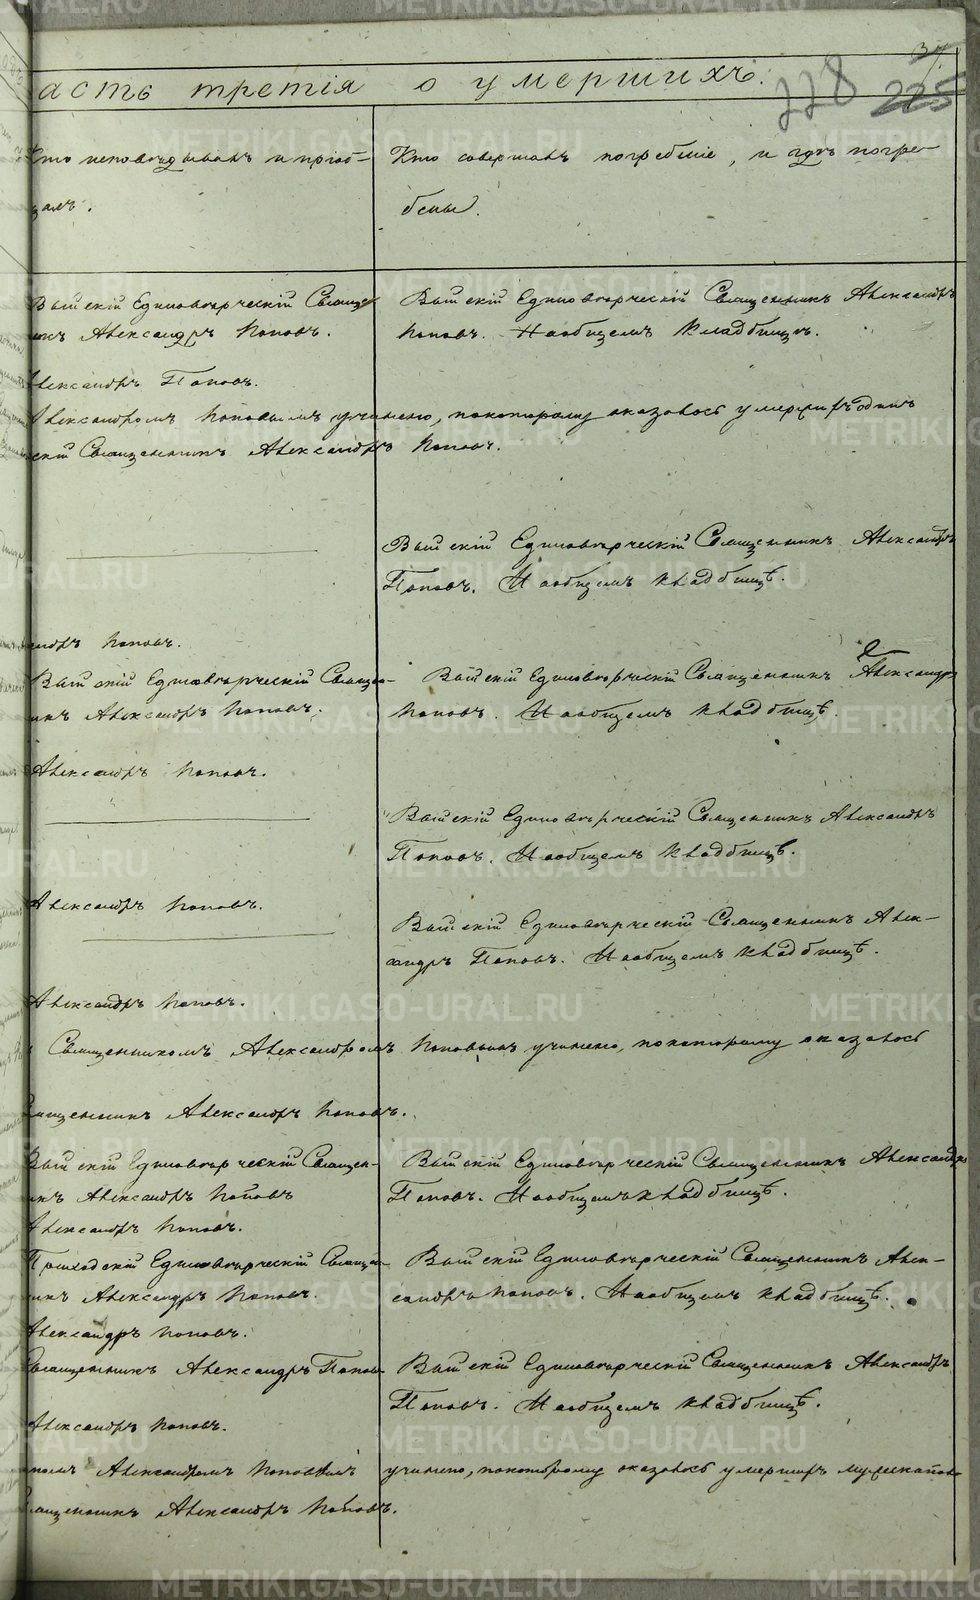 37.
асть третія о умершихъ.
228 225
Кто исповѣдывалъ и пріоб-
щалъ.
Кто совершалъ погребеніе, и гдѣ погре-
бены.
Выйскій Единовѣрческій Священ
икъ Александръ Поповъ.
Выйскій Единовѣрческій Священникъ Александръ
Поповъ. На общемъ кладбищѣ.
Александръ Поповъ.
Александромъ Поповымъ учинено, по которому оказалось умершихъ
скій Священникъ Александръ Поповъ.
Выйскій Единовѣрческій Священникъ Александръ
Поповъ. На общемъ кладбищѣ.
андръ Поповъ.
Выйскій Единовѣрческій Священ-
икъ Александръ Поповъ.
Выйскій Единовѣрческій Священникъ Александръ
Поповъ. На общемъ кладбищѣ.
Александръ Поповъ.
Выйскій Единовѣрческій Священникъ Александръ
Поповъ. На общемъ кладбищѣ.
Александръ Поповъ.
Выйскій Единовѣрческій Священникъ Алек-
сандръ Поповъ. На общемъ кладбищѣ.
Александръ Поповъ.
Священникомъ Александромъ Поповымъ учинено, по которому оказалось
Священникъ Александръ Поповъ.
Выйскій Единовѣрческій Священ-
икъ Александръ Поповъ
Выйскій Единовѣрческій Священникъ Александръ
Поповъ. На общемъ кладбищѣ.
Александръ Поповъ.
Приходскій Единовѣрческій Священ-
икъ Александръ Поповъ.
Выйскій Единовѣрческій Священникъ Алек-
сандръ Поповъ. На общемъ кладбищѣ.
Александръ Поповъ.
Священникъ Александръ Поповъ
Выйскій Единовѣрческій Священникъ Александръ
Поповъ. На общемъ кладбищѣ.
Александръ Поповъ.
комъ Александромъ Поповымъ учинено, по которому оказалось умершихъ мужеска пола
Священникъ Александръ Поповъ.
METRIKI.GASO-URAL.RU